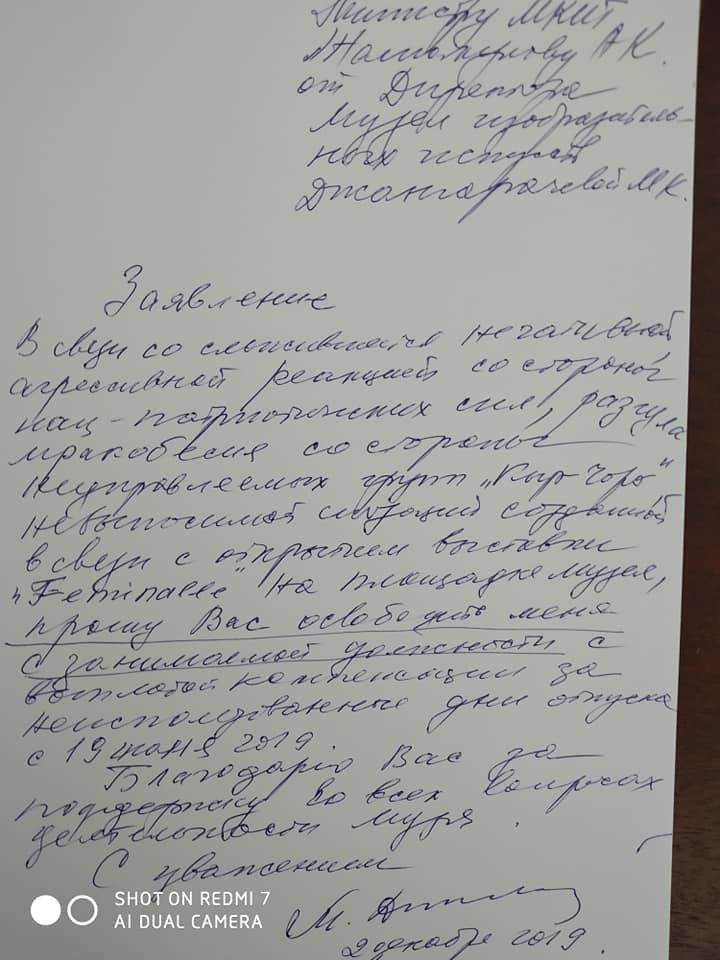 Министру МКИТ
Жаманкулову А К.
от Директора
Музея изобразитель-
ных искусств
Джангарачевой М К.
Заявление
В связи со сложившейся негативной
агрессивной реакцией со стороны
нац-патриотических сил, разгула
мракобесия со стороны
неуправляемых групп „Кырк Чоро"
невыносимой ситуаций созданной
в связи с открытием выставки
„Feminnale" на площадке музея,
прошу Вас освободить меня
с занимаемой должности с
выплатой компенсации за
неиспользованные дни отпуска
с 19 июня 2019.
Благодарю Вас за
поддержку во всех вопросах
деятельности музея.
С уважением
М.
2 декабря 2019.
SHOT ON REDMI 7
AI DUAL CAMERA